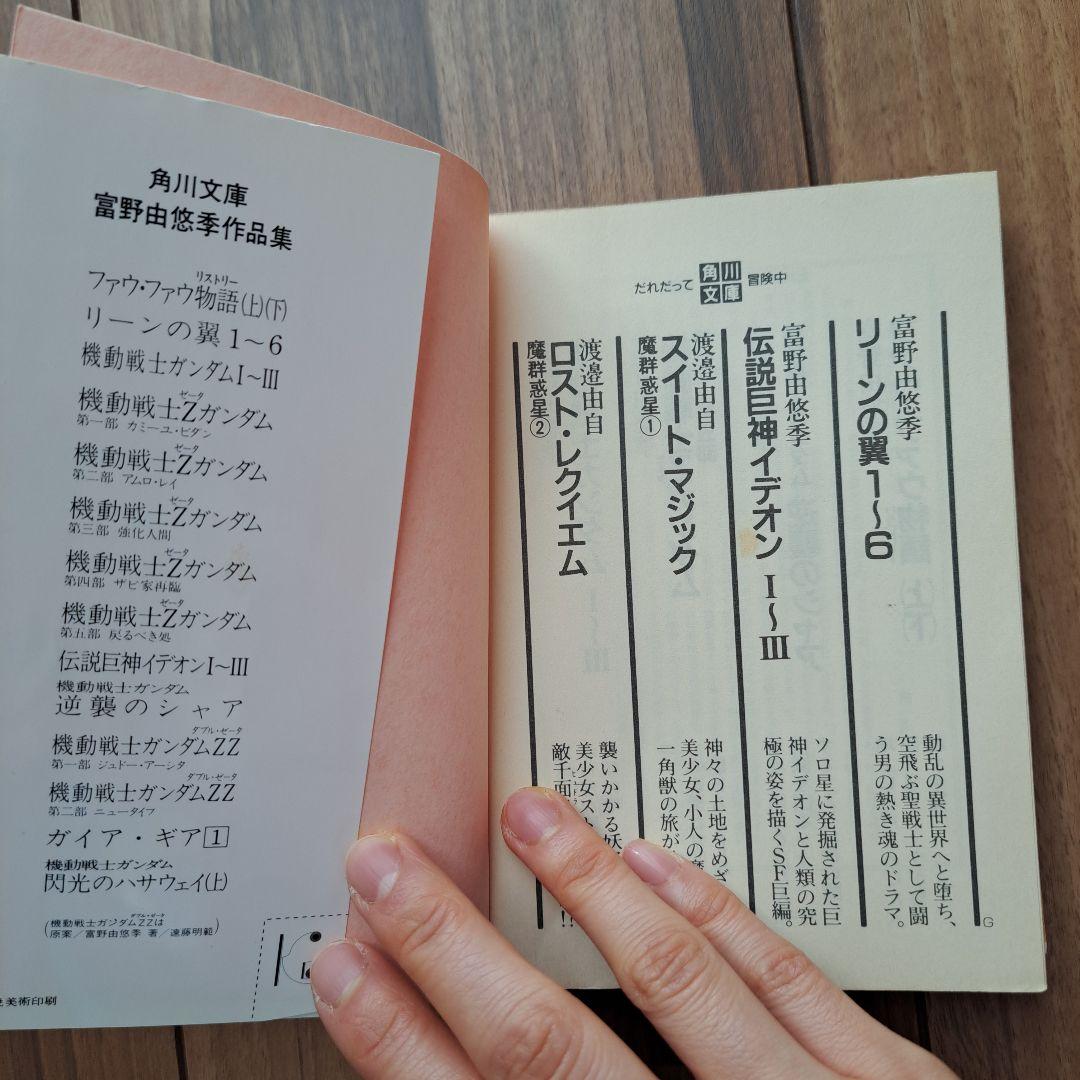 角川文庫
富野由悠季作品集
リストリー
ファウ・ファウ物語(上)(下)
リーンの翼1〜6
機動戦士ガンダムI〜III
ゼータ
機動戦士Zガンダム
第一部 カミーユ・ビダン
ゼータ
機動戦士Zガンダム
第二部 アムロ・レイ
ゼータ
機動戦士Zガンダム
第三部 強化人間
ゼータ
機動戦士Zガンダム
第四部 ザビ家再臨
ゼータ
機動戦士Zガンダム
第五部 戻るべき処
伝説巨神イデオンI〜III
機動戦士ガンダム
逆襲のシャア
ダブル・ゼータ
機動戦士ガンダムZZ
第一部 ジュドー・アーシタ
ダブル・ゼータ
機動戦士ガンダムZZ
第二部 ニュータイプ
ガイア・ギア1
機動戦士ガンダム
閃光のハサウェイ(上)
ダブル・ゼータ
(機動戦士ガンダムZZは
原案/富野由悠季 著/遠藤明範)
美術印刷
だれだって 角川文庫 冒険中
富野由悠季
リーンの翼 1〜6
動乱の異世界へと堕ち、
空飛ぶ聖戦士として闘
う男の熱き魂のドラマ。
富野由悠季
伝説巨神イデオン I〜III
ソロ星に発掘された巨
神イデオンと人類の究
極の姿を描くSF巨編。
渡邉由自
スイート・マジック
魔群惑星①
神々の土地をめざ
美少女、小人の
一角獣の旅が
渡邉由自
ロスト・レクイエム
魔群惑星②
襲いかかる妖
美少女スト
敵千面
!!
G